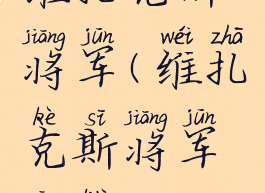 jiāng jūn wéi zhā
将军(维扎
kè sī jiāng jūn
克斯将军